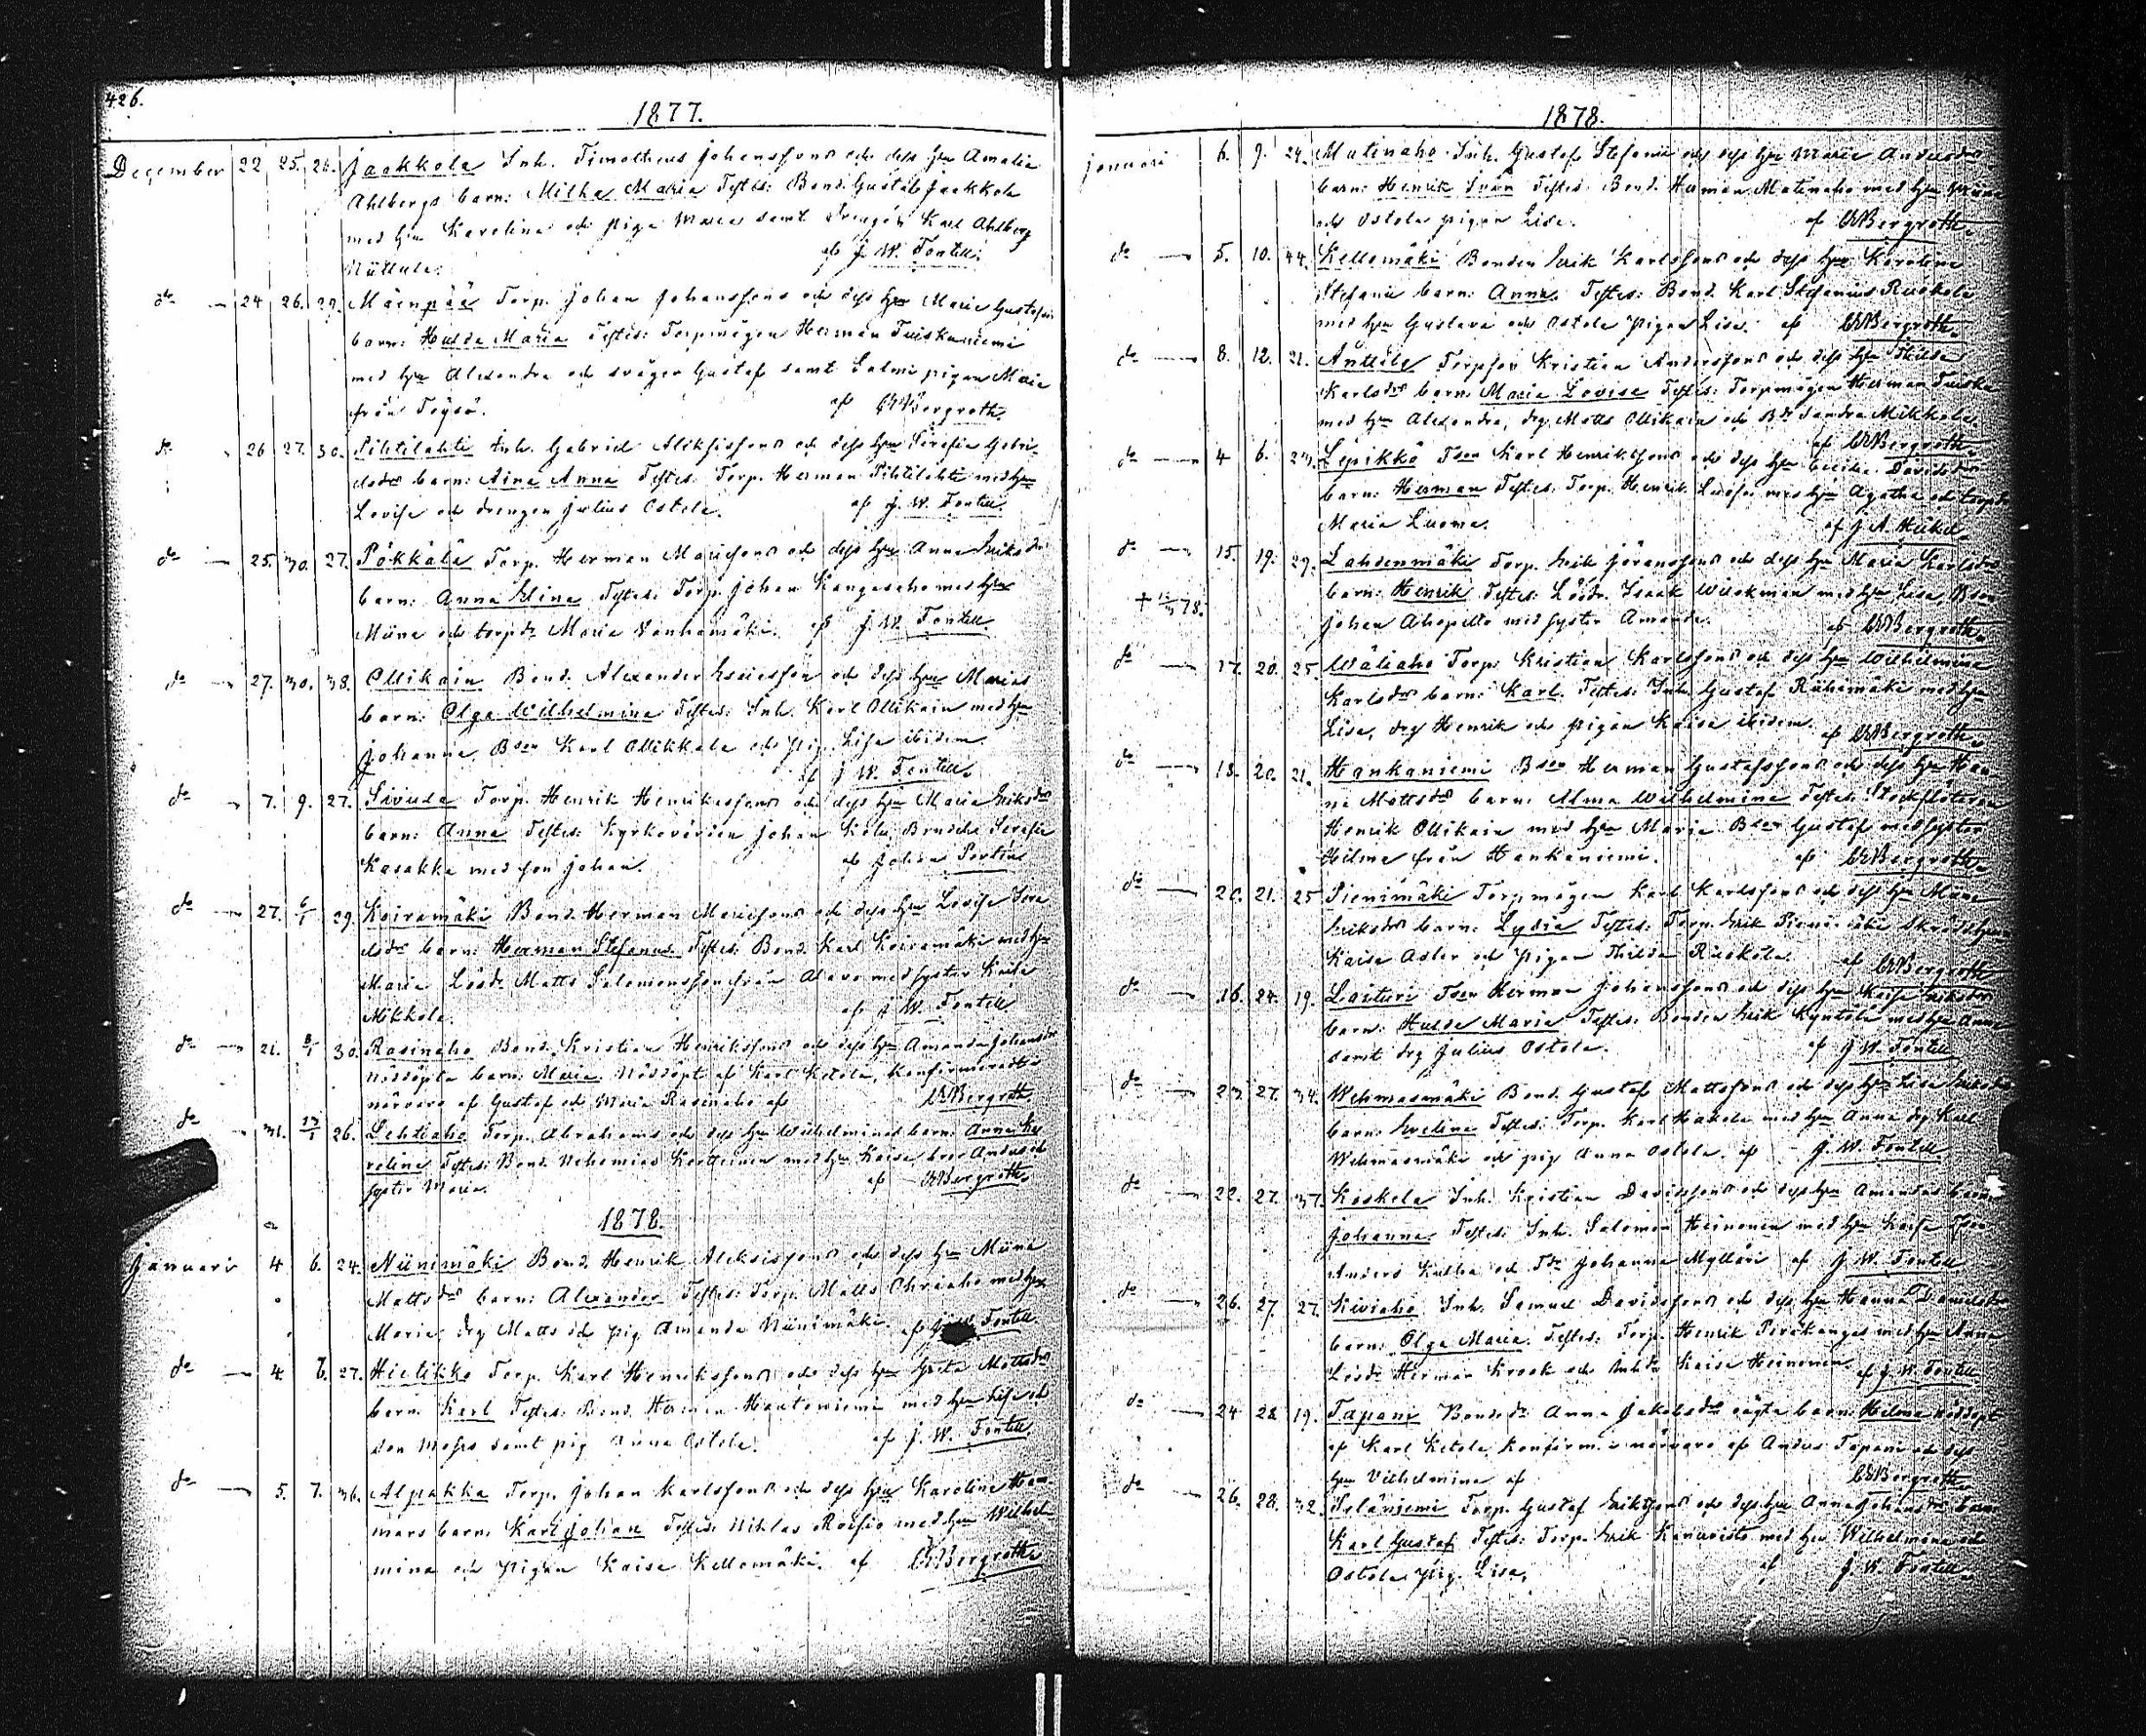 426.
1877.
December 22 25. 26. Jaakkola Inh. Timotheus Johansson och dess hu Amalia
Ahlbergs barn: Milka Maria Testes: Bond. Gustaf Jaakkola
med hu Karolina och piga Maria samt Drengen Karl Ahlberg
af J. W. Fontell.
do 24 26. 29. Mäenpää Torp. Johan Johanssons och dess hu Maria Gustafs
barn: Hulda Maria Testes: Torpmågen Herman Tuiskuniemi
med hu Alexandra och svåger Gustaf samt Salmi pigan Maria
från Töysä. af CRBergroth.
do 26 27. 30. Pihtilahti Inh. Gabriel Aleksissons och dess hu Serafia Gabri-
elsdr barn: Aina Anna Testes: Torp. Herman Pihtilahti med hu
Lovisa och drengen Julius Ostola. af J. W. Fontell.
do 25. 30. 27. Pökkälä Torp. Herman Mariesons och dess hu Anna Eriksdr
barn: Anna Elina Testes: Torp. Johan Kangasaho med hu
Miina och torpdr Maria Vanhamäki. af J. W. Fontell.
do 27. 30. 38. Ollikain Bond. Alexander och dess hu Marias
barn: Olga Wilhelmina Testes: Inh. Karl Ollikain med hu
Johanna, Bson Karl Ollikkala och pig. Lisa ibidem.
af J W. Fontell.
do 7. 9. 27. Sivula Torp. Henrik Henrikssons och dess hu Maria Eriksdr
barn: Anna Testes: Kyrkovärden Johan Serafia
Kasakka med son Johan. af Johan Portin
do 27. 6/1 29. Koiramäki Bond. Herman Mariesons och dess hu Lovisa Isra
elsdr barn: Herman Stefanus. Testes: Bond. Karl Koiramäki med hu
Maria Lösdr Matts Salomonsson från Alavo med syster Kaisa
Mikkola. af J W. Fontell
do 21. 8/1 30. Rasinaho Bond. Kristian Henrikssons och dess hu Amanda Johansdr
nöddöpta barn: Maria Nöddöpt af Karl Ketola, konfirmerades i
närvaro af Gustaf och Maria Rasinaho af CRBergroth
do 31. 13/1 26. Lehtiaho Torp. Abrahams och dess hu Wilhelminas barn: Anna Ka
rolina Testes: Bond. Nehemias Kortteinen med hu Kaisa, bror Anders och
syster Maria. af CRBergroth.
1878.
Januari 4 6. 24. Niinimäki Bond. Henrik Aleksissons och dess hu Miina
Mattsdrs barn: Alexander Testes: Torp. Matts Ohraaho med hu
Maria, drg Matts och pig Amanda Niinimäki. af J.W. Fontell.
do 4 6. 27. Hietikko Torp. Karl Henrikssons och dess hu Greta Mattsdrs
barn Karl Testes: Bond. Herman Hautaniemi med hu Lisa och
son Moses samt pig Anna Ostola. af J. W. Fontell
do 5. 7. 36. Alpakka Torp. Johan Karlssons och dess hu Karolina Ham-
mars barn: Karl Johan Testes: Niklas Roisio med hu Wilhel-
mina och pigan Kaisa Kellomäki. af CRBergroth
1878.
Januari 6. 9. 24. Matinaho Inh. Gustaf Stefanis och dess hu Maria Andersdrs
barn: Henrik Ivan Testes: Bond. Herman Matinaho med hu
och Ostola pigan Lisa. af CRBergroth.
do 5. 10. 44. Kellomäki Bonden Erik Karlssons och dess hu Karolina
Stefanis barn: Anna. Testes: Bond. Karl Stefanius Ruokola
med hu Gustava och Ostola pigan Lisa. af CRBergroth
do 8. 12. 21. Anttila Torpson Kristian Anderssons och dess hu Thilda
Karlsdrs barn: Maria Lovisa Testes: Torpmågen Herman Tuisku
med hu Alexandra, drg Matts Ollikain och Bdr Sandra Mikkola.
af CRBergroth.
do 4 6. 23. Lepikkö Tson Karl Henrikssons och dess hu Cecilia Davidsdrs
barn: Herman Testes: Torp. Henrik med hu Agatha och torpdr
Maria Luoma. af J A. Heikel.
do 15. 19. 29. Lahdenmäki Torp. Erik Göranssons och dess hu Maria Karlsdrs
† 78. barn: Henrik Testes: Lösdr. Isaak Wiickman med hu Lisa, Bson
Johan Ahopelto med syster Amanda. af CRBergroth.
do 17. 20. 25. Wäliaho Torp. Kristian Karlssons och dess hu Wilhelmina
Karlsdrs barn: Karl. Testes: Inh. Gustaf Riihimäki med hu
Lisa, drg Henrik och pigan Kaisa ibidem. af CRBergroth.
do 18. 20. 21. Hankaniemi Bson Herman Gustafssons och dess hu Han-
na Mattsdrs barn: Alma Wilhelmina Testes: Stockflötaren
Henrik Ollikain med hu Maria Bson Gustaf med syster
Hilma från Hankaniemi. af CRBergroth.
do 20. 21. 25 Pienimäki Torpmågen Karl Karlssons och dess hu
Eriksdrs barn: Lydia Testes: Torp. Erik Pienimäki
Kaisa Asler och pigan Thilda Ruokola. af CRBergroth
do 16. 24. 19. Loituri Tson Herman Johanssons och dess hu Kaisa Eriksdrs
barn: Hulda Maria Testes: Bonden Erik Kyntölä med hu Anna
samt drg Julius Ostola. af J W. Fontell
do 23. 27. 34. Wehmasmäki Bond. Gustaf Mattssons och dess hu Lisa
barn: Evelina Testes: Torp. Karl Hakola med hu Anna drg Karl
Wehmasmäki och pig Anna Ostola. af J. W. Fontell
do 22. 27. 37. Koskela Inh. Kristian Davidssons och dess hu Amandas barn
Johanna. Testes: Inh. Salomon Heinonen med hu Kaisa
Anders och Tdr Johanna Mylläri af J W. Fontell
do 26. 27. 27. Kiviaho Inh. Samuel Davidssons och dess hu Hanna Danielsdr
barn: Olga Maria. Testes: Torp. Henrik Peräkangas med hu Anna
Lösdr Herman Krook och Inhdr Kaisa Heinonen af J. W. Fontell
do 24 28 19. Tapani Bondedr Anna Jakobsdrs oägta barn: Hilma nöddöpt
af Karl Ketola konfirm. i närvaro af Anders Tapani och dess
hu Vilhelmina af CRBergroth.
do 26. 28. 32. Torp. Gustaf Erikssons och dess hu Anna Johansdrs barn
Karl Gustaf Testes: Torp. Erik Kanavisto med hu Wilhelmina och
Ostola pig. Lisa. af J. W. Fontell.